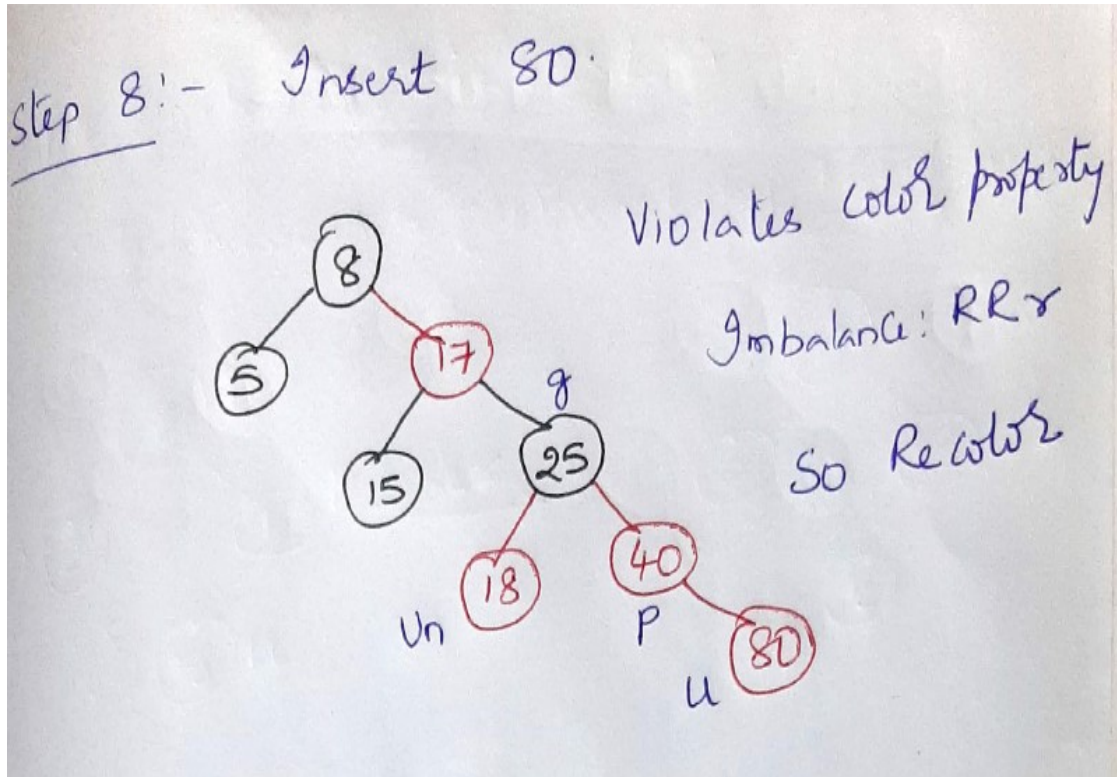 Step 8:- Insert 80.
Violates color property
Imbalance: RRr
So Recolor
8
5
17
g
15
25
18
40
Un
P
80
u